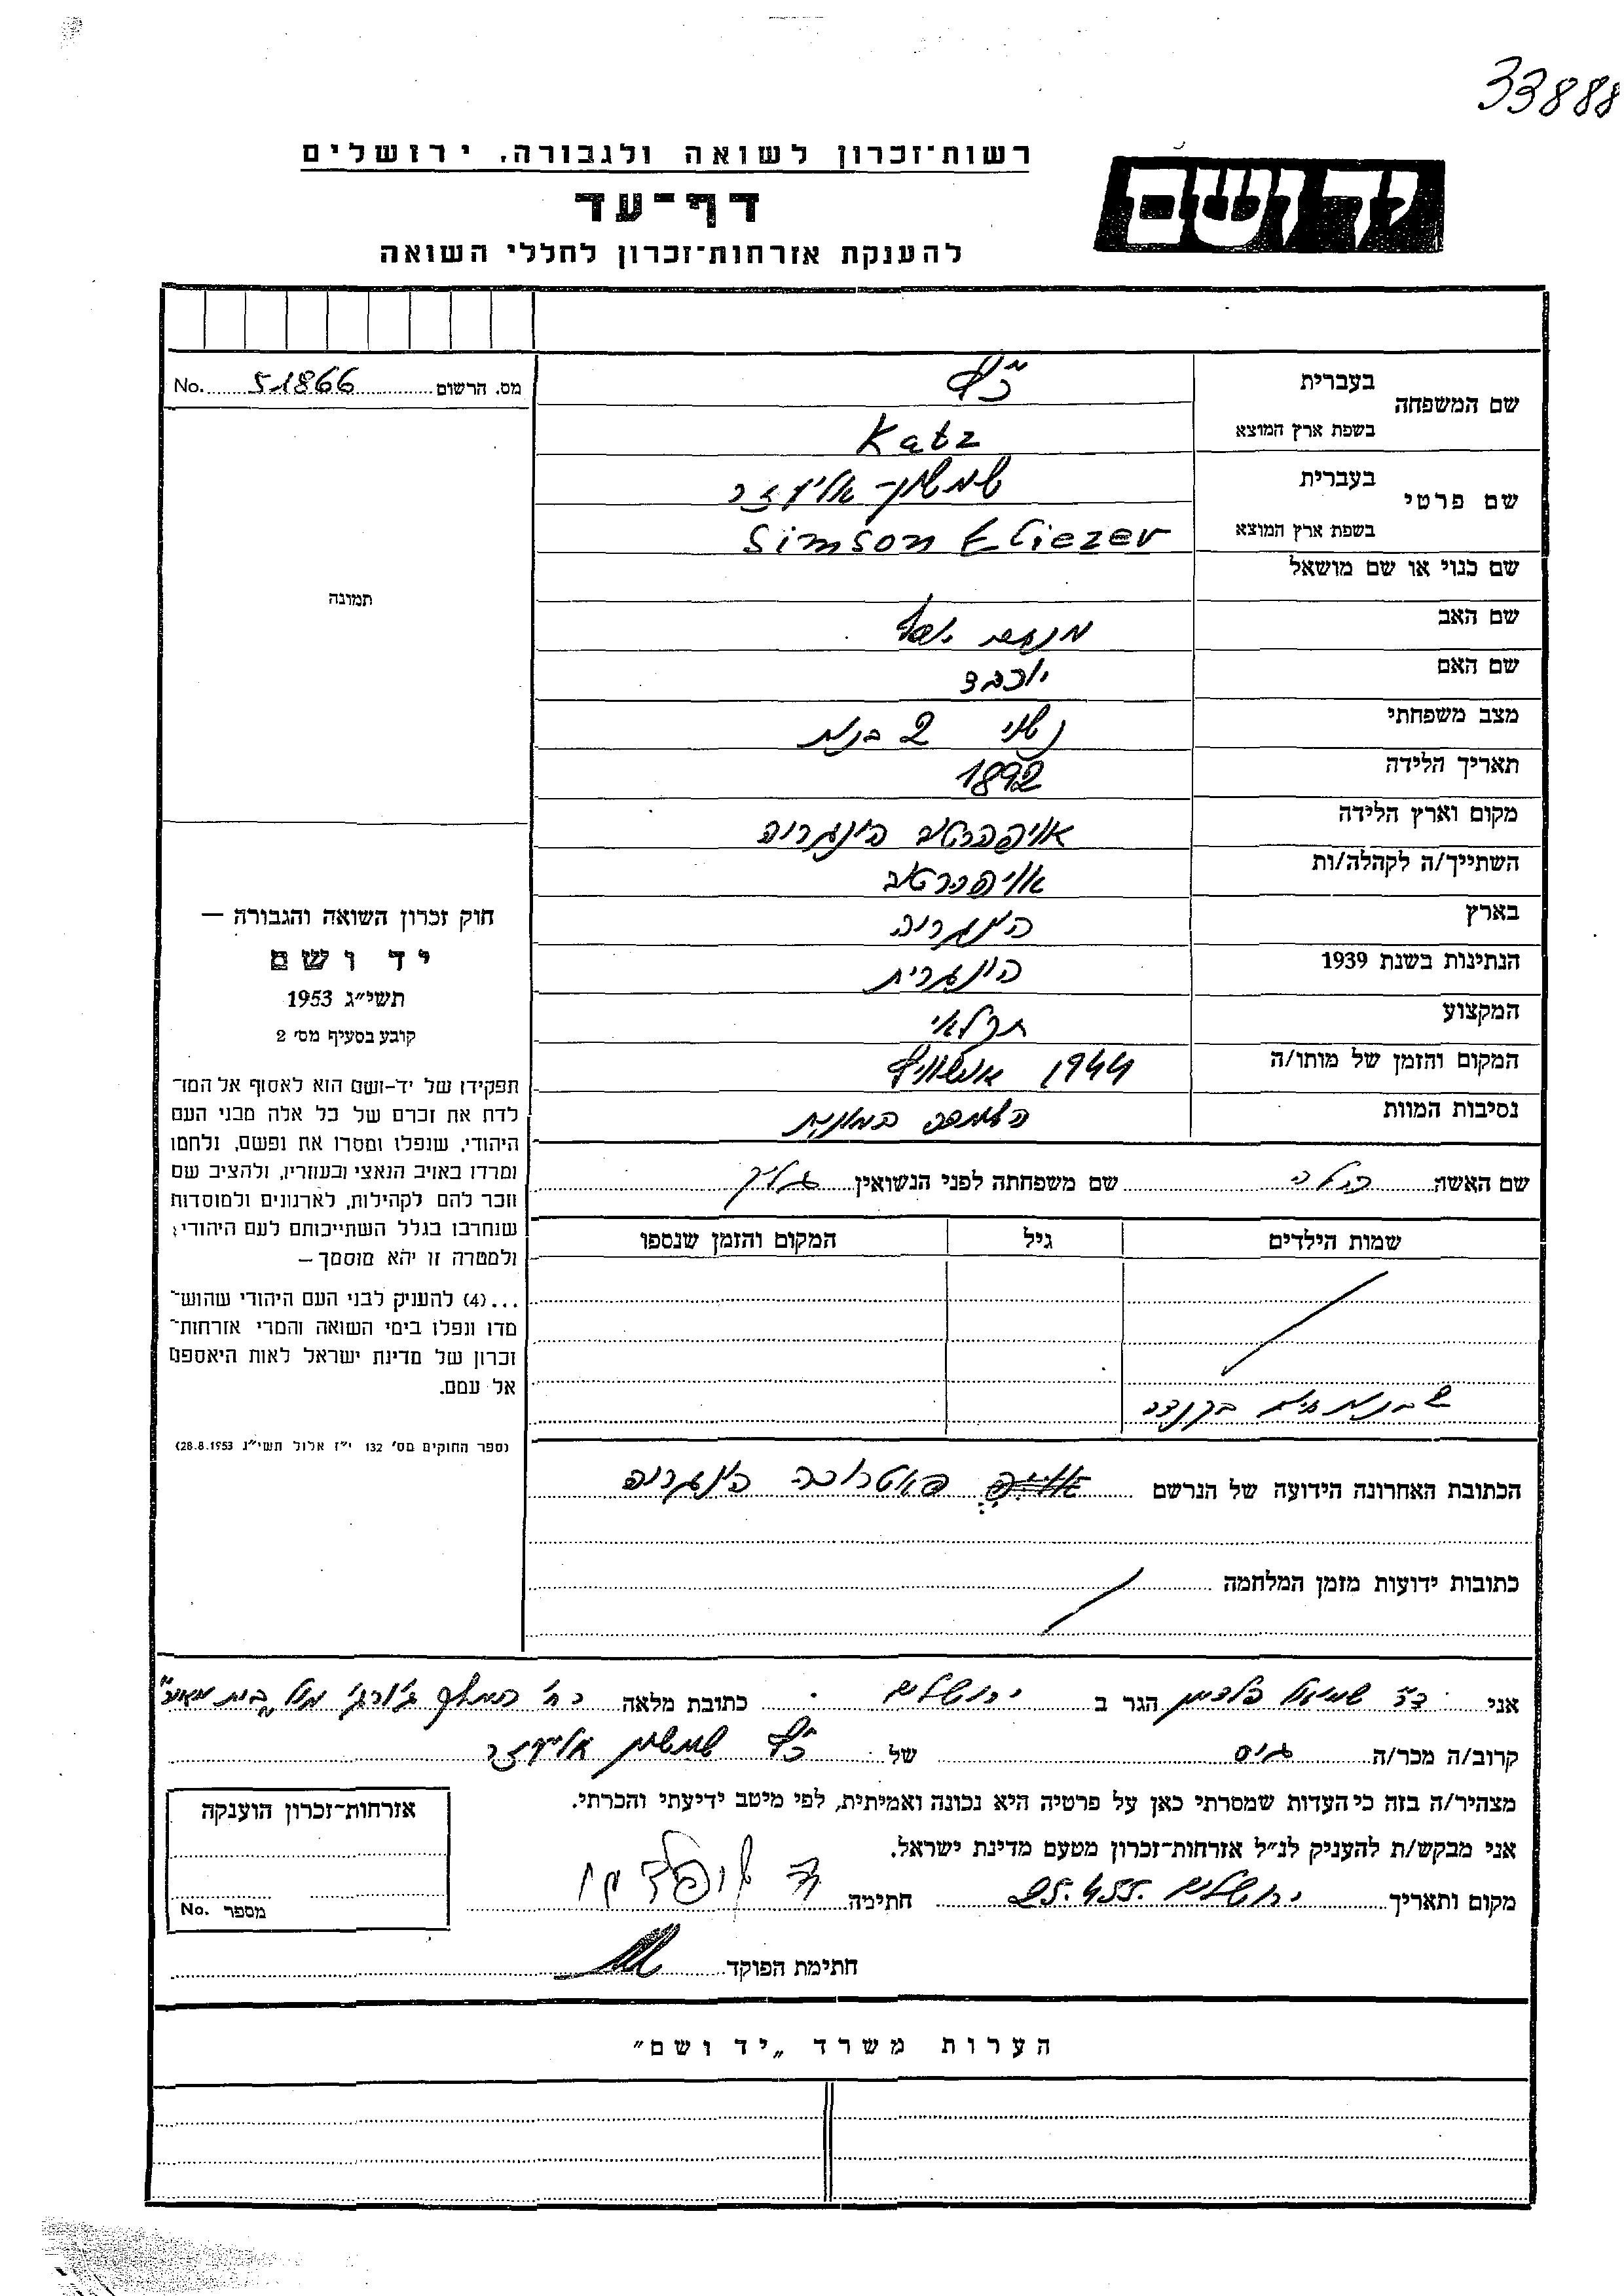 33888
רשות־זכרון לשואה ולגבורה, ירושלים
יד ושם
דף־עד
להענקת אזרחות־זכרון לחללי השואה
מס. הרשום 51866 No.
שם המשפחה בעברית כ״ץ
בשפת ארץ המוצא Katz
שם פרטי בעברית שמשון־אליעזר
בשפת ארץ המוצא Simson Eliezer
שם כנוי או שם מושאל
שם האב מנחם יוסף
שם האם יוכבד
מצב משפחתי נשוי 2 בנות
תאריך הלידה 1892
מקום וארץ הלידה הונגריה
השתייך/ה לקהלה/ות
בארץ הונגריה
הנתינות בשנת 1939 הונגרית
המקצוע חקלאי
המקום והזמן של מותו/ה 1944 אושוויץ
נסיבות המוות השמדה המונית
שם האשה שם משפחתה לפני הנשואין
שמות הילדים גיל המקום והזמן שנספו
בנות בקנדה
הכתובת האחרונה הידועה של הנרשם הונגריה
כתובות ידועות מזמן המלחמה
תמונה
חוק זכרון השואה והגבורה —
יד ושם
תשי״ג 1953
קובע בסעיף מס׳ 2
תפקידו של יד-ושם הוא לאסוף אל המו־
לדת את זכרם של כל אלה מבני העם
היהודי, שנפלו ומסרו את נפשם, נלחמו
ומרדו באויב הנאצי ובעוזריו, ולהציב שם
וזכר להם לקהילות, לארגונים ולמוסדות
שנחרבו בגלל השתייכותם לעם היהודי;
ולמטרה זו יהא מוסמך —
...(4) להעניק לבני העם היהודי שהוש־
מדו ונפלו בימי השואה והמרי אזרחות־
זכרון של מדינת ישראל לאות היאספם
אל עמם.
(ספר החוקים מס׳ 132 י״ז אלול תשי״ג 28.8.1953)
אני ד״ר שמואל הגר ב ירושלים כתובת מלאה רח׳ המלך ג׳ורג׳ מול בית
קרוב/ה מכר/ה גיס של כ״ץ שמשון אליעזר
מצהיר/ה בזה כי העדות שמסרתי כאן על פרטיה היא נכונה ואמיתית, לפי מיטב ידיעתי והכרתי.
אני מבקש/ת להעניק לנ״ל אזרחות־זכרון מטעם מדינת ישראל.
מקום ותאריך ירושלים 25.4.55 חתימה
חתימת הפוקד
אזרחות־זכרון הוענקה
מספר No.
הערות משרד „יד ושם״